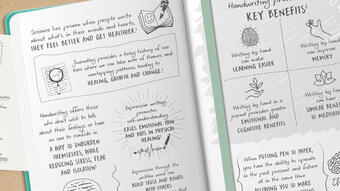 Science has proven when people write
about what's in their minds and hearts,
THEY FEEL BETTER AND GET HEALTHIER!
Journaling provides a living history of our
lives where we can take note of themes and
overlapping patterns, leading to
HEALING, GROWTH AND CHANGE!
Handwriting offers those
who don't wish to talk
about their feelings or have
no one to confide in
A WAY TO UNBURDEN
THEMSELVES, WHILE
REDUCING STRESS, FEAR
AND ISOLATION!
Expressive writing
self-understanding
EASES EMOTIONAL PAIN
AND AIDS IN PHYSICAL
HEALING!
Expression through the
written word can
BUILD TRUST AND BONDS
WITH OTHERS
Handwriting
KEY BENEFITS!
Writing by hand
can make
LEARNING EASIER
Writing by hand
can improve
MEMORY
Writing by hand in a
journal provides greater
EMOTIONAL AND
COGNITIVE BENEFITS
Writing by hand
can have
SIMILAR BENEFITS
TO MEDITATION
WHEN PUTTING PEN TO PAPER,
you have the ability to operate
in the past, present and future
all at the same time
ALLOWING YOU TO MAKE